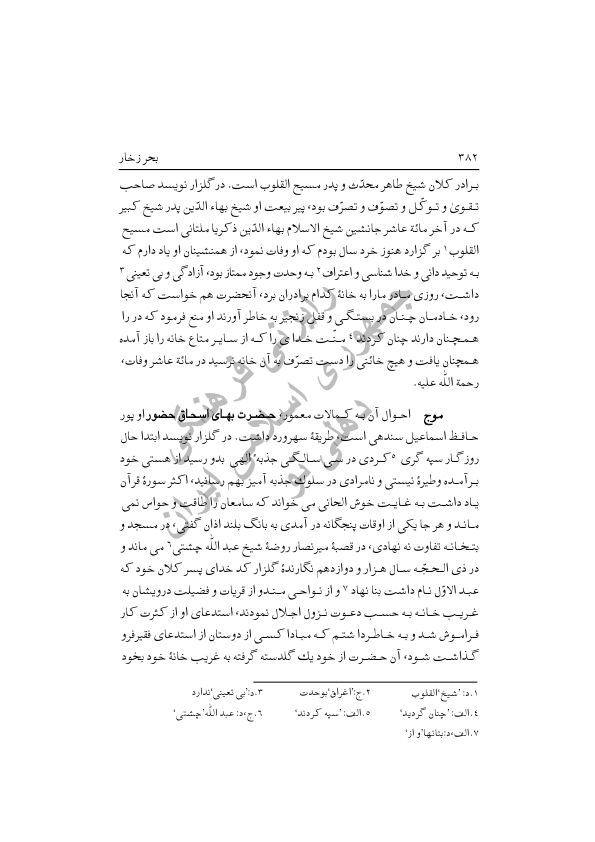 ۳۸۲ بحر زخار
برادر کلان شیخ طاهر محدّث و پدر مسیح القلوب است. در گلزار نویسد صاحب
تقویٰ و توکّل و تصوّف و تصرّف بود، پیر بیعت او شیخ بهاء الدّین پدر شیخ کبیر
که در آخر مائهٔ عاشر جانشین شیخ الاسلام بهاء الدّین ذکریا ملتانی است مسیح
القلوب۱ بر گزارد هنوز خرد سال بودم که او وفات نمود، از همنشینان او یاد دارم که
به توحید دانی و خدا شناسی و اعتراف۲ به وحدت وجود ممتاز بود، آزادگی و بی تعینی۳
داشت، روزی مادر مارا به خانهٔ کدام برادران برد، آنحضرت هم خواست که آنجا
رود، خادمان چنان در بستگی و قفل زنجیر به خاطر آورند او منع فرمود که در را
همچنان دارند چنان کردند۴ منّت خدا ی را که از سایر متاع خانه را باز آمده
همچنان یافت و هیچ خائنی را دست تصرّف به آن خانه نرسید در مائة عاشر وفات،
رحمة اللّه علیه.
موج احوال آن به کمالات معمور، حضرت بهای اسحاق حضور او پور
حافظ اسماعیل سندهی است، طریقهٔ سهرورد داشت. در گلزار نویسد ابتدا حال
روزگار سپه گری۵ کردی در سی سالگی جذبهٔ الٰهی بدو رسید از هستی خود
برآمده وطیرهٔ نیستی و نامرادی در سلوک جذبه آمیز بهم رسانید، اکثر سورهٔ قرآن
یاد داشت به غایت خوش الحانی می خواند که سامعان را طاقت و حواس نمی
ماند و هر جا یکی از اوقات پنجگانه در آمدی به بانگ بلند اذان گفتی، در مسجد و
بتخانه تفاوت نه نهادی، در قصبهٔ میرنصار روضهٔ شیخ عبد اللّٰه چشتی۶ می ماند و
در ذی الحجّه سال هزار و دوازدهم نگارندهٔ گلزار کد خدای پسر کلان خود که
عبد الاوّل نام داشت بنا نهاد۷ و از نواحی مندو از قریات و فضیلت درویشان به
غریب خانه به حسب دعوت نزول اجلال نمودند، استدعای او از کثرت کار
فراموش شد و به خاطر دا شتم که مبادا کسی از دوستان از استدعای فقیر فرو
گذاشت شود، آن حضرت از خود یك گلدسته گرفته به غریب خانهٔ خود بخود
۱.د: ’شیخ‘القلوب ۲.ج:’اغراق‘بوحدت ۳.د:’بی تعینی‘ندارد
۴.الف: ’چنان گردید‘ ۵.الف: ’سپه کردند‘ ۶.ج،د: عبد اللّٰه’چشتی‘
۷.الف،د:بتانها’و از‘